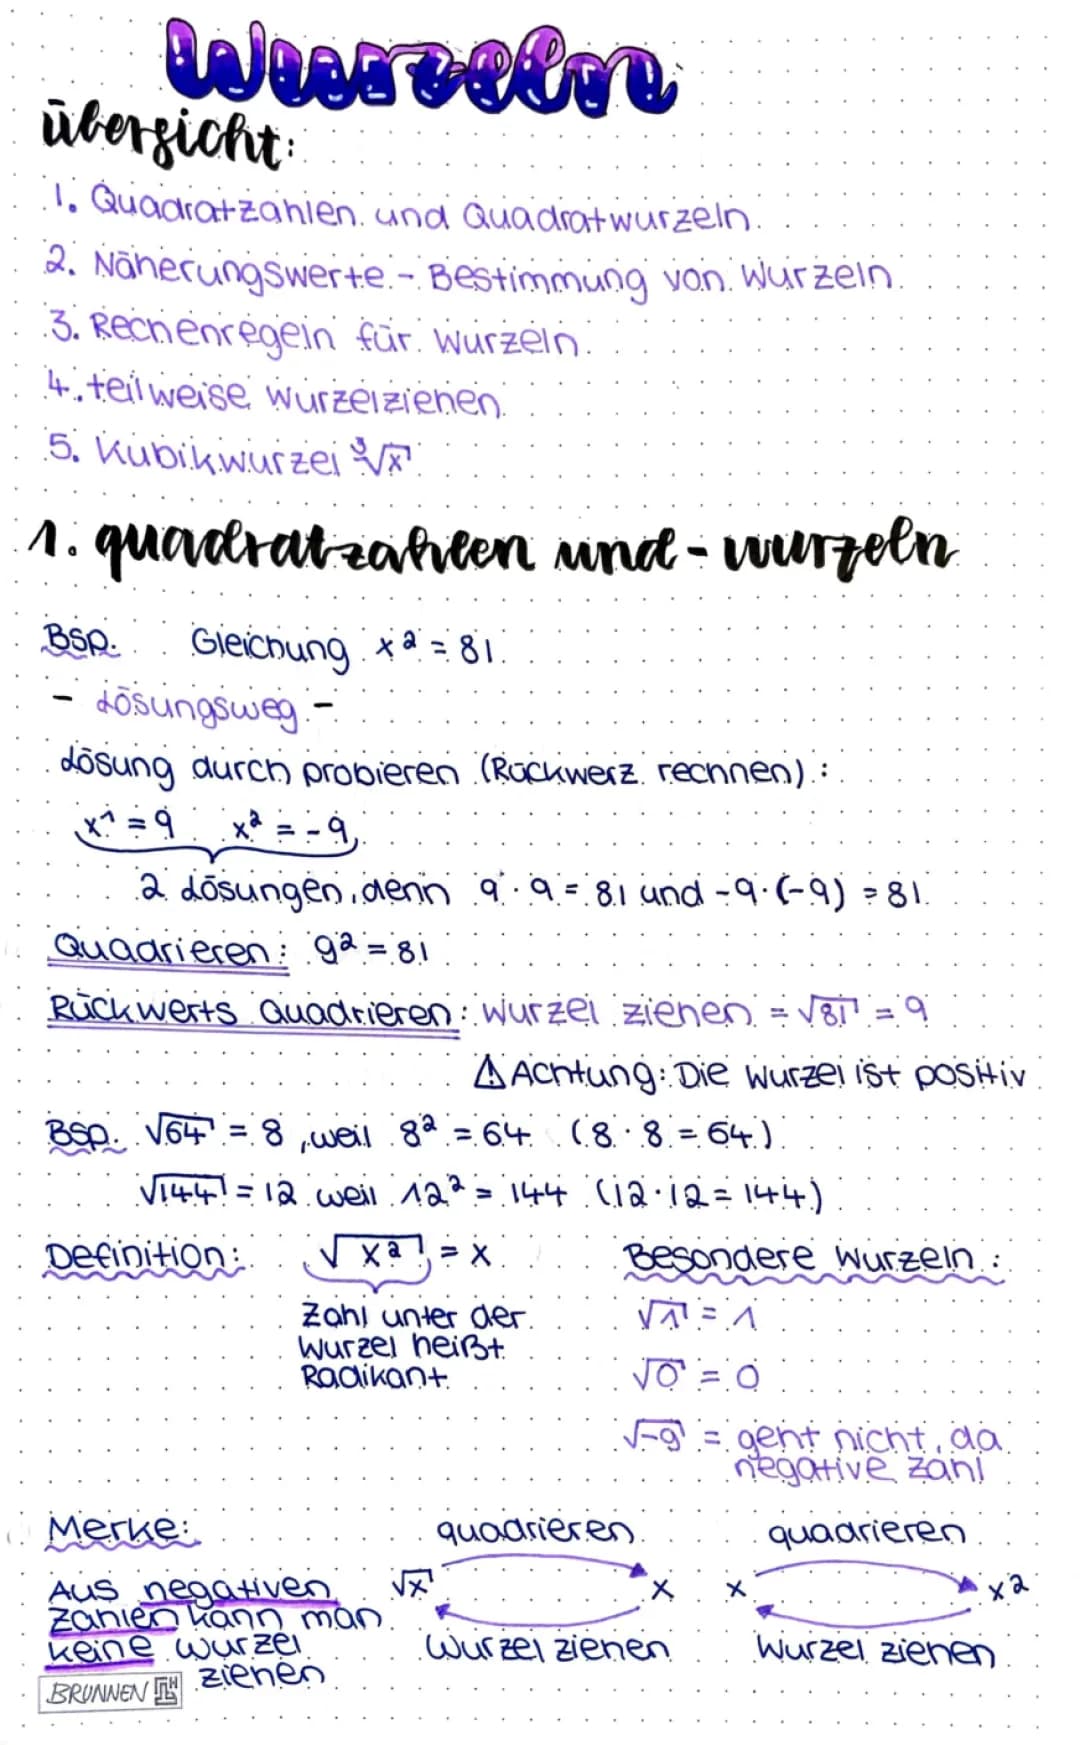 Wurzeln
übersicht:
1. Quadratzahlen und Quadratwurzeln
2. Näherungswerte - Bestimmung von Wurzeln
3. Rechenregeln für Wurzeln
4. teilweise Wurzelziehen
5. Kubikwurzel ³√x
1. quadratzahlen und - wurzeln
Bsp. Gleichung x² = 81
- Lösungsweg -
Lösung durch probieren (Rückwerz rechnen):
x¹ = 9 x² = -9
2 Lösungen, denn 9 · 9 = 81 und -9 · (-9) = 81
Quadrieren: 9² = 81
Rückwerts Quadrieren: Wurzel ziehen = √81 = 9
⚠ Achtung: Die Wurzel ist positiv
Bsp. √64 = 8, weil 8² = 64 (8 · 8 = 64)
√144 = 12 weil 12² = 144 (12 · 12 = 144)
Definition: √x² = x Besondere Wurzeln:
Zahl unter der √1 = 1
Wurzel heißt
Radikant √0 = 0
√-9 = geht nicht, da
negative Zahl
Merke: quadrieren quadrieren
Aus negativen √x x x x²
Zahlen kann man
keine Wurzel Wurzel ziehen Wurzel ziehen
ziehen
BRUNNEN